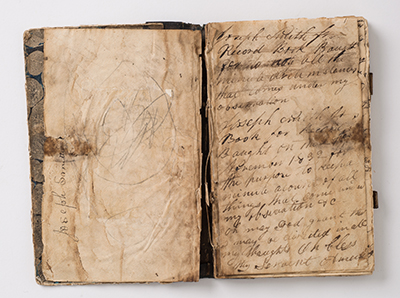 Joseph Smith
Joseph Smith Jrs
Record Book Baught
for to note all the
minute circumstances
that comes under my
observation
Joseph Smith Jrs
Book for Record
Baught on the
of November 1832 for
the purpose to keep a
minute acount of all
things that come under
my observation &c
Oh may God grant that
I may be directed in all
my thaughts Oh bless
thy Servent Amen